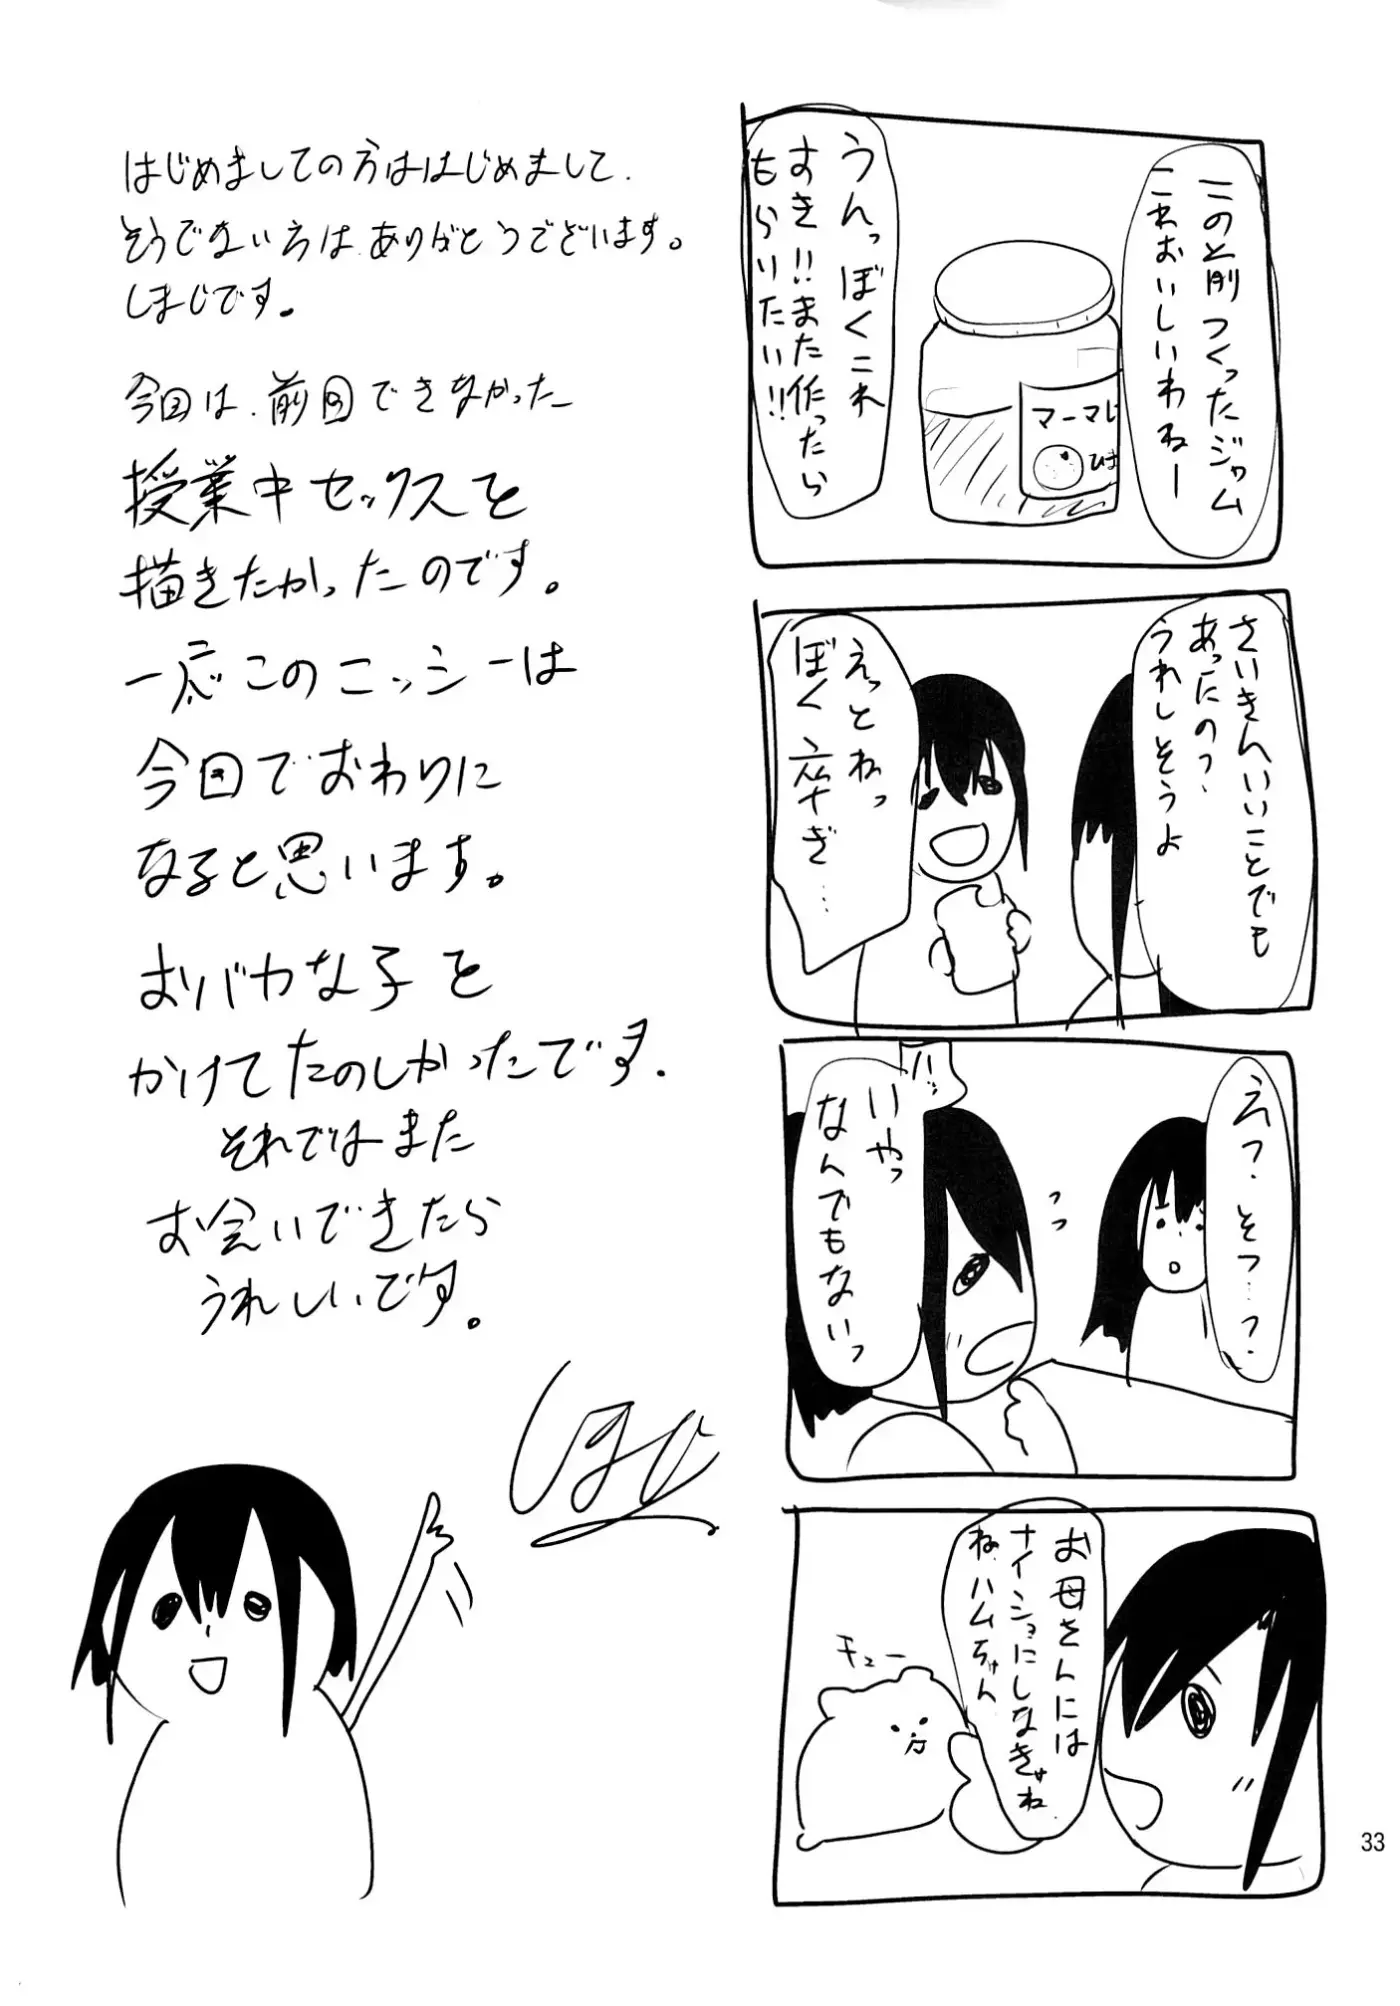 この前つくったジャム
これおいしいわねー
うんっぼくこれ
すき!!また作ったら
もらいたい!!
マーマレ
ひま
さいきんいいことでも
あったの?
うれしそうよ
えっとねっ
ぼく卒ぎ…
えっ?そつ…?
ハッ
いやっ
なんでもないっ
お母さんには
ナイショにしなきゃね
ね、ハムちゃん
チュー
はじめましての方ははじめまして、
そうでない方は、ありがとうございます。
しまじです。
今回は、前回できなかった
授業中セックスを
描きたかったのです。
一応このニッシーは
今回でおわりに
なると思います。
おバカな子を
かけてたのしかったです。
それではまた
お会いできたら
うれしいです。
33